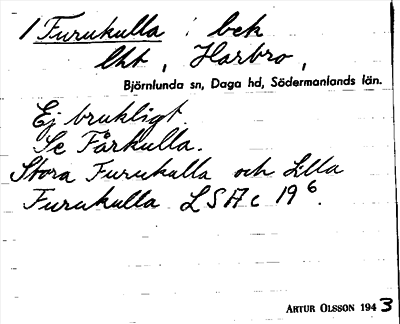 1 Furukulla : bek
lht, Harbro,
Björnlunda sn, Daga hd, Södermanlands län.
Ej brukligt.
Se Fårkulla.
Stora Furukulla och Lilla
Furukulla LSA c 19⁶.
ARTUR OLSSON 1943